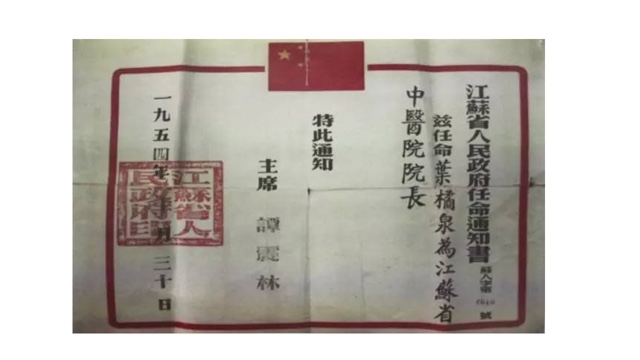 江蘇省人民政府任命通知書 蘇人字第 號
茲任命葉橘泉為江蘇省
中醫院院長
特此通知
主席 譚震林
一九五四年 月三十日
江蘇省人民政府印